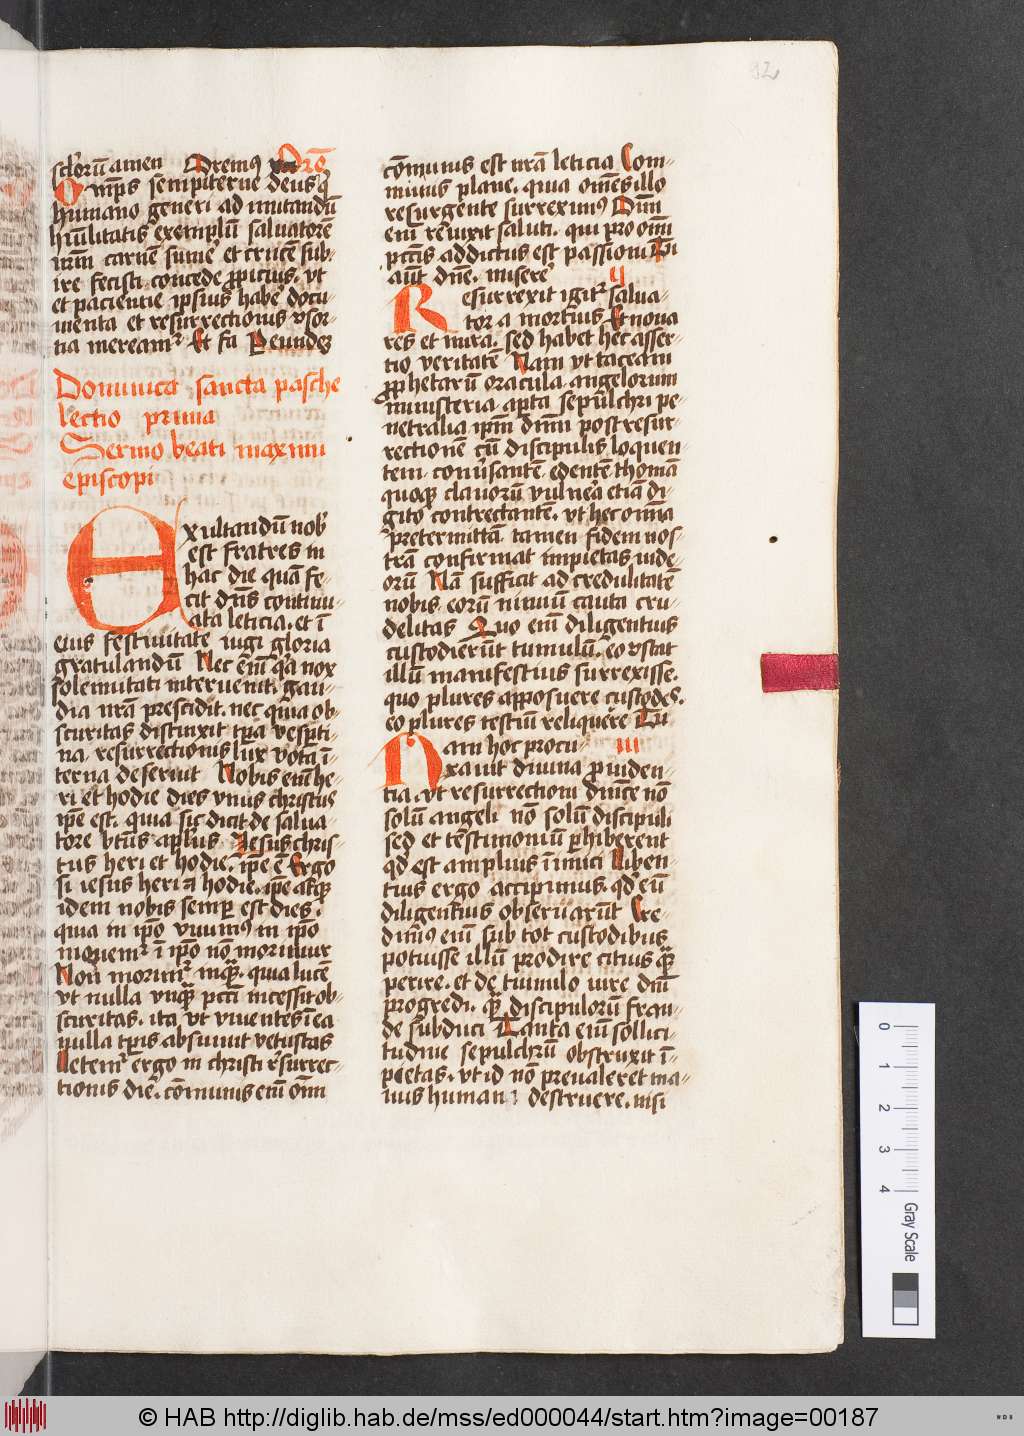 92
sclorū amen Oremꝰ Orē
Omps sempiterne deus q̄
humano generi ad imitandū
hūilitatis exemplū saluatorē
nrm̄ carnē sumē et crucē sub-
ire fecisti concede ꝓpicius. vt
et paciencie ipsius habē docu-
menta et resurrectionis ꝯsor-
tia mereamᷣ Et fa Benndeꝫ
Dominica sancta pasche
lectio prima
Sermo beati maximi
episcopi
Exultandū nob̉
est fratres in
hac die quā fe-
cit dn̄s continu-
ata leticia. et ī
eius festiuitate iugi gloria
gratulandū Nec em̄ qr̄a nox
solemnitati interuenit. gau-
dia nrā prescidit. nec quia ob-
scuritas distinxit tpra vespti-
na. resurrectionis lux votā ī
terna deseruit Nobis em̄ he-
ri et hodie dies vnus christus
ipē est. quia sic dicit de salua-
tore btūs aplus Iesus chris-
tus heri et hodie. ipē ē Ergo
si iesus heri ⁊ hodie. ipē atqꝫ
idem nobis semp̄ est dies.
quia in ip̄o viuimꝰ in ip̄o
mouemᷣ ī ip̄o nō morimur
Non morimᷣ inqꝫ. quia lucē
vt nulla vnqꝫ pctī incessit ob-
scuritas. ita vt viuentes ī ea
nulla tp̄is absumit vetustas
Letemᷣ ergo in christi rsurrec-
tionis diē. cōmunis em̄ om̄i
cōmunis est nrā leticia Com-
munis plane. quia om̄es illo
resurgente surreximꝰ Om̄i
em̄ reuixit saluti. qui pro om̄i
pctīs addictus est passioni Tu
aut̄ dn̄e. miserē
ij
Resurrexit igitᷣ salua-
tor a mortuis Et noua
res et mira. sed habet hec asser-
tio veritatē Nam vt taceam
ꝓphetarū oracula. angelorum
ministeria. apta sepulchri pe-
netralia ipm̄ dnm̄ post resur-
rectionē cū discipulis loquen-
tem. conu̓santē. edentē thomā
quoqꝫ clauorū vulnera etiā di-
gito contrectantē. vt hec omīa
pretermittā tamen fidem nos-
trā confirmat impietas iude-
orū Nā sufficit ad credulitatē
nobis eorū nimiū cauta cru-
delitas Quo em̄ diligentius
custodierūt tumulū. eo ꝯstat
illū manifestius surrexisse.
quo plures apposuere custodes.
eo plures testiū reliquere Tu
iij
Nam hoc procu-
rauit diuina prouiden-
tia. vt resurrectioni dnīce nō
solū angeli nō solū discipuli
sed et testimoniū ꝑhiberent
qd̄ est amplius inimici Liben-
tius ergo accipimus. qd̄ eū
diligentius obseruarūt Cre-
dimꝰ em̄ sub tot custodibus
potuisse illū prodire citius qꝫ
perire. et de tumulo iure dnm̄
progredi. qꝫ discipulorū frau-
de subduci Tanta em̄ sollici-
tudine sepulchrū obstruxit ī-
pietas. vt id nō preualeret ma-
nus humana destruere. nisi
0
1
2
3
4
Gray Scale
© HAB http://diglib.hab.de/mss/ed000044/start.htm?image=00187